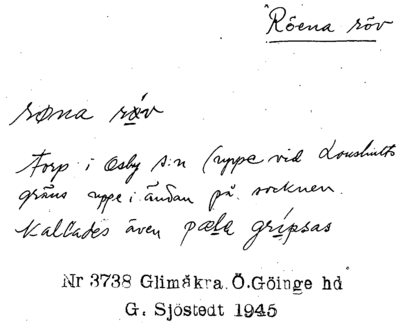 Röena röv
røna røv
Torp i Osby s:n (uppe vid Loushults
gräns uppe i ändan på socknen.
Kallades även pæla grípsas
Nr 3738 Glimåkra Ö.Göinge hd
G. Sjöstedt 1945